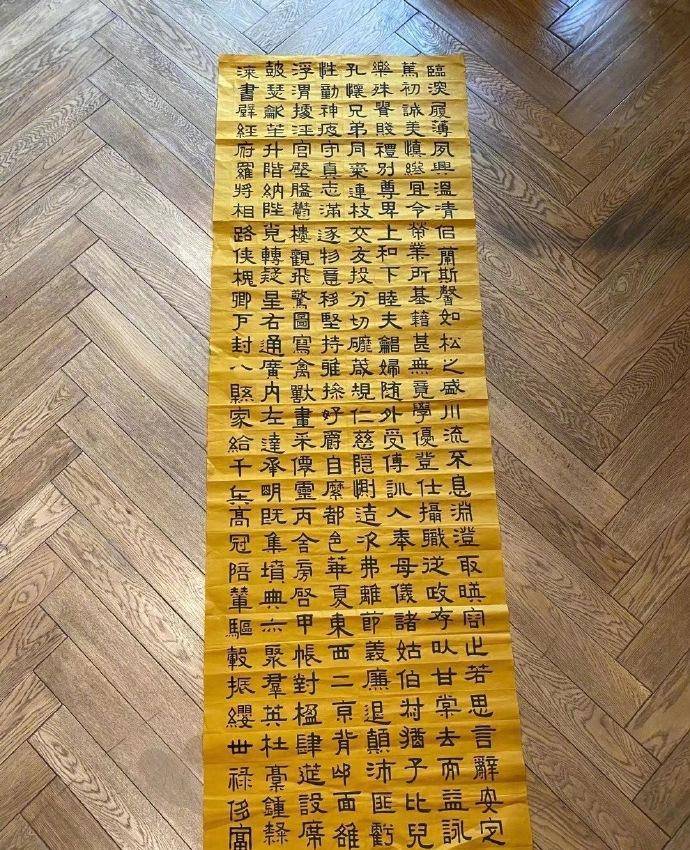 臨深履薄夙興溫凊佀蘭斯馨如松之盛川流不息淵澄取暎容止若思言辭安定
篤初誠美慎終宜令榮業所基籍甚無竟學優登仕攝職從政存以甘棠去而益詠
樂殊貴賤禮別尊卑上和下睦夫唱婦隨外受傅訓入奉母儀諸姑伯叔猶子比兒
孔懷兄弟同氣連枝交友投分切磨箴規仁慈隱惻造次弗離節義廉退顛沛匪虧
性動神疲守真志滿逐物意移堅持雅操好爵自縻都邑華夏東西二京背邙面雒
浮渭據涇宮殿盤鬱樓觀飛驚圖寫禽獸畫采僊靈丙舍房啓甲帳對楹肆筵設席
鼓瑟龡笙升階納陛弁轉疑星右通廣內左達承明既集墳典亦聚羣英杜稾鍾隸
漆書壁經府羅將相路俠槐卿戶封八縣家給千兵高冠陪輦驅轂振纓世祿侈富